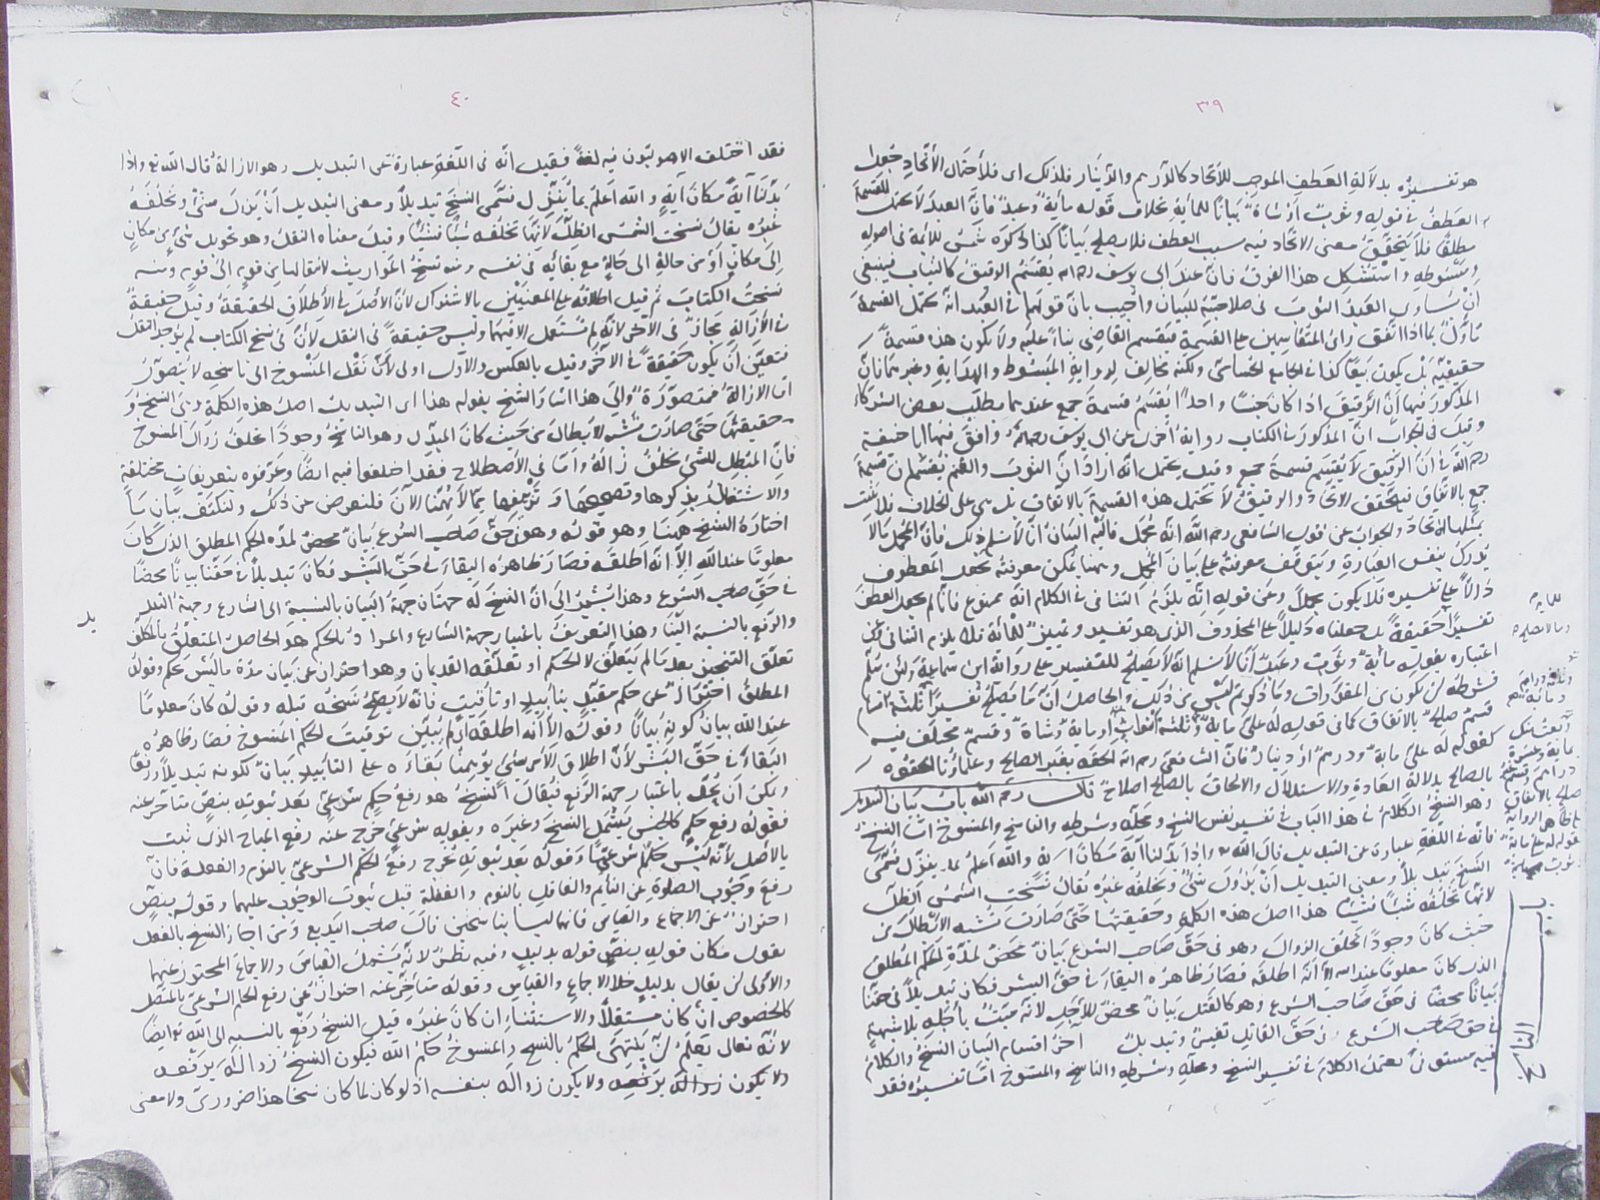 ٣٩
هو تفسيره بدلالة العطف الموجب للاتحاد كالدرهم والدينار فلذلك اى فلاحتمال الاتحاد جعل
العطف فى قوله وثوب او شاة بيانا للمائة بخلاف قوله مائة وعبد فان العبد لا يحتمل القسمة
مطلقا فلا يتحقق معنى الاتحاد فيه بسبب العطف فلا يصلح بيانا كذا ذكره شمس الائمة فى اصوله
ومبسوطه واستشكل هذا الفرق فان عند ابى يوسف رحمه الله يقسم الرقيق كالثياب فينبغى
ان يساوى العبد الثوب فى صلاحيته للبيان واجيب بان قولهما فى العبد انه يحتمل القسمة
مأول بما اذا اتفق راى المتقاسمين على القسمة فيقسم القاضى بناء عليه ولا يكون هذا قسمة
حقيقية بل يكون بيعا كذا فى الجامع الحسامى ولكنه مخالف لرواية المبسوط والهداية وغيرهما فان
المذكور فيها ان الرقيق اذا كان جنسا واحدا يقسم قسمة جمع عندهما بطلب بعض الشركاء
وقيل فى الجواب ان المذكور فى الكتاب رواية اخرى عن ابى يوسف رحمه الله وافق فيها ابا حنيفة
رحمه الله فى ان الرقيق لا يقسم قسمة جمع وقيل يحتمل انه اراد ان الثوب والغنم يقسمان قسمة
جمع بالاتفاق فيتحقق الاتحاد والرقيق لا يحتمل هذه القسمة بالاتفاق بل هى على الخلاف فلا يثبت
بمثلها الاتحاد والجواب عن قول الشافعى رحمه الله انه مجمل فاليه البيان انا لا نسلم ذلك فان المجمل ما لا
يدرك بنفس العبارة ويتوقف معرفته على بيان المجمل وههنا يمكن معرفته بجعل المعطوف
دالا على تفسيره فلا يكون مجملا وعن قوله انه يلزم التنافى فى الكلام انه ممنوع فانا لم نجعل العطف
تفسيرا حقيقة بل جعلناه دليلا على المحذوف الذى هو تفسير وتمييز للمائة فلا يلزم التنافى
اعتباره بقوله مائة وثوب وعبد انا لا نسلم انه لا يصلح للتفسير على رواية ابن سماعة ولئن سلم
فشرطه ان يكون من المقدرات وما ذكرتم ليس من ذلك والحاصل ان ما يصلح تفسيرا ثلثة اقسام
قسم صالح بالاتفاق كما فى قوله له على مائة وثلثة اثواب او مائة وشاة وقسم مختلف فيه
كقوله له على مائة ودرهم او دينار فان الشافعى رحمه الله الحقه بغير الصالح وعلماؤنا الحقوه
بالصالح بدلالة العادة والاستدلال والالحاق بالصالح اصلاح قال رحمه الله باب بيان التبديل
وهو النسخ الكلام فى هذا الباب فى تفسير نفس النسخ ومحله وشرطه والناسخ والمنسوخ اما النسخ
فانه فى اللغة عبارة عن التبديل قال الله تع واذا بدلنا آية مكان آية والله اعلم بما ينزل فسمى
النسخ تبديلا ومعنى التبديل ان يزول شئ ويخلفه غيره يقال نسخت الشمس الظل
لانها تخلفه شيئا فشيئا هذا اصل هذه الكلمة وحقيقتها حتى صارت تشبه الابطال من
حيث كان وجودا يخلف الزوال وهو فى حق صاحب الشرع بيان محض لمدة الحكم المطلق
الذى كان معلوما عند الله الا انه اطلقه فصار ظاهره البقاء فى حق البشر فكان تبديلا فى حقنا
بيانا محضا فى حق صاحب الشرع وهو كالقتل بيان محض للاجل لانه ميت باجله بلا شبهة
فى حق صاحب الشرع وفى حق القاتل تغيير وتبديل آخر اقسام البيان النسخ والكلام
فيه مستوفى يعتمد الكلام فى تفسير النسخ ومحله وشرطه والناسخ والمنسوخ اما تفسيره فقد
٤٠
فقد اختلف الاصوليون فيه لغة فقيل انه فى اللغة عبارة عن التبديل وهو الازالة قال الله تع واذا
بدلنا آية مكان آية والله اعلم بما ينزل فسمى النسخ تبديلا ومعنى التبديل ان يزول شئ ويخلفه
غيره يقال نسخت الشمس الظل لانها تخلفه شيئا فشيئا وقيل معناه النقل وهو تحويل شئ من مكان
الى مكان او من حالة الى حالة مع بقائه فى نفسه ومنه تناسخ المواريث لانتقالها من قوم الى قوم ومنه
نسخت الكتاب ثم قيل اطلاقه على المعنيين بالاشتراك لان الاصل فى الاطلاق الحقيقة وقيل حقيقة
فى الازالة مجاز فى الآخر لانه لم يستعمل الا فيهما وليس حقيقة فى النقل لان فى نسخ الكتاب لم يوجد النقل
فتعين ان يكون حقيقة فى الآخر وقيل بالعكس والاول اولى لان نقل المنسوخ الى ناسخه لا يتصور
اما الازالة فمتصورة والى هذا اشار الشيخ بقوله هذا اى التبديل اصل هذه الكلمة وهى النسخ و
حقيقتها حتى صارت تشبه الابطال من حيث كان المبدل وهو الناسخ وجودا يخلف زوال المنسوخ
فان المبطل للشئ يخلف زواله واما فى الاصطلاح فقد اختلفوا فيه ايضا وعرفوه بتعريفات مختلفة
والاشتغال بذكرها وتصحيحها وتزييفها مما لا يهمنا الآن فلنعرض عن ذلك ولنكتف ببيان ما
اختاره الشيخ ههنا وهو قوله وهو فى حق صاحب الشرع بيان محض لمدة الحكم المطلق الذى كان
معلوما عند الله الا انه اطلقه فصار ظاهره البقاء فى حق البشر فكان تبديلا فى حقنا بيانا محضا
فى حق صاحب الشرع وهذا يشير الى ان النسخ له جهتان جهة البيان بالنسبة الى الشارع وجهة التبديل
والرفع بالنسبة الينا وهذا التعريف باعتبار جهة الشارع والمراد بالحكم هو الحاصل المتعلق بالمكلف
تعلق التنجيز بعد ما لم يتعلق لا الحكم او تعلقه القديمان وهو احتراز عن بيان مدة ما ليس بحكم وقوله
المطلق احتراز عن حكم مقيد بتأبيد او تاقيت فانه لا يصح نسخه قبله وقوله كان معلوما
عند الله بيان كونه بيانا وقوله الا انه اطلقه اى لم يبين توقيت الحكم المنسوخ فصار ظاهره
البقاء فى حق البشر لان اطلاق الامر بشئ يوهمنا بقاءه على التابيد بيان لكونه تبديلا ورفعا
ويمكن ان يحد باعتبار جهة الرفع فيقال النسخ هو رفع حكم شرعى بعد ثبوته بنص متأخر عنه
فقوله رفع حكم كالجنس يشمل النسخ وغيره وبقوله شرعى خرج عنه رفع المباح الذى ثبت
بالاصل لانه ليس حكما شرعيا وقوله بعد ثبوته يخرج رفع الحكم الشرعى بالنوم والغفلة فان
رفع وجوب الصلوة عن النائم والغافل بالنوم والغفلة قبل ثبوت الوجوب عليهما وقوله بنص
احتراز عن الاجماع والقياس فانهما ليسا بناسخين قال صاحب البديع ومن اجاز النسخ بالفعل
يقول مكان قوله بنص قوله بدليل وفيه نظر لانه يشمل القياس والاجماع المحترز عنهما
والاولى ان يقال بدليل خلا الاجماع والقياس وقوله متأخر عنه احتراز عن رفع الحكم الشرعى بالمتصل
كالخصوص ان كان مستقلا والاستثناء ان كان غيره قيل النسخ رفع بالنسبة الى الله تع ايضا
لانه تعالى يعلم ان ينتهى الحكم بالنسخ والمنسوخ حكم الله فيكون النسخ زواله برفعه
ولا يكون زواله برفعه ولا يكون زواله بنفسه اذ لو كان لما كان نسخا هذا ضرورى ولا معنى